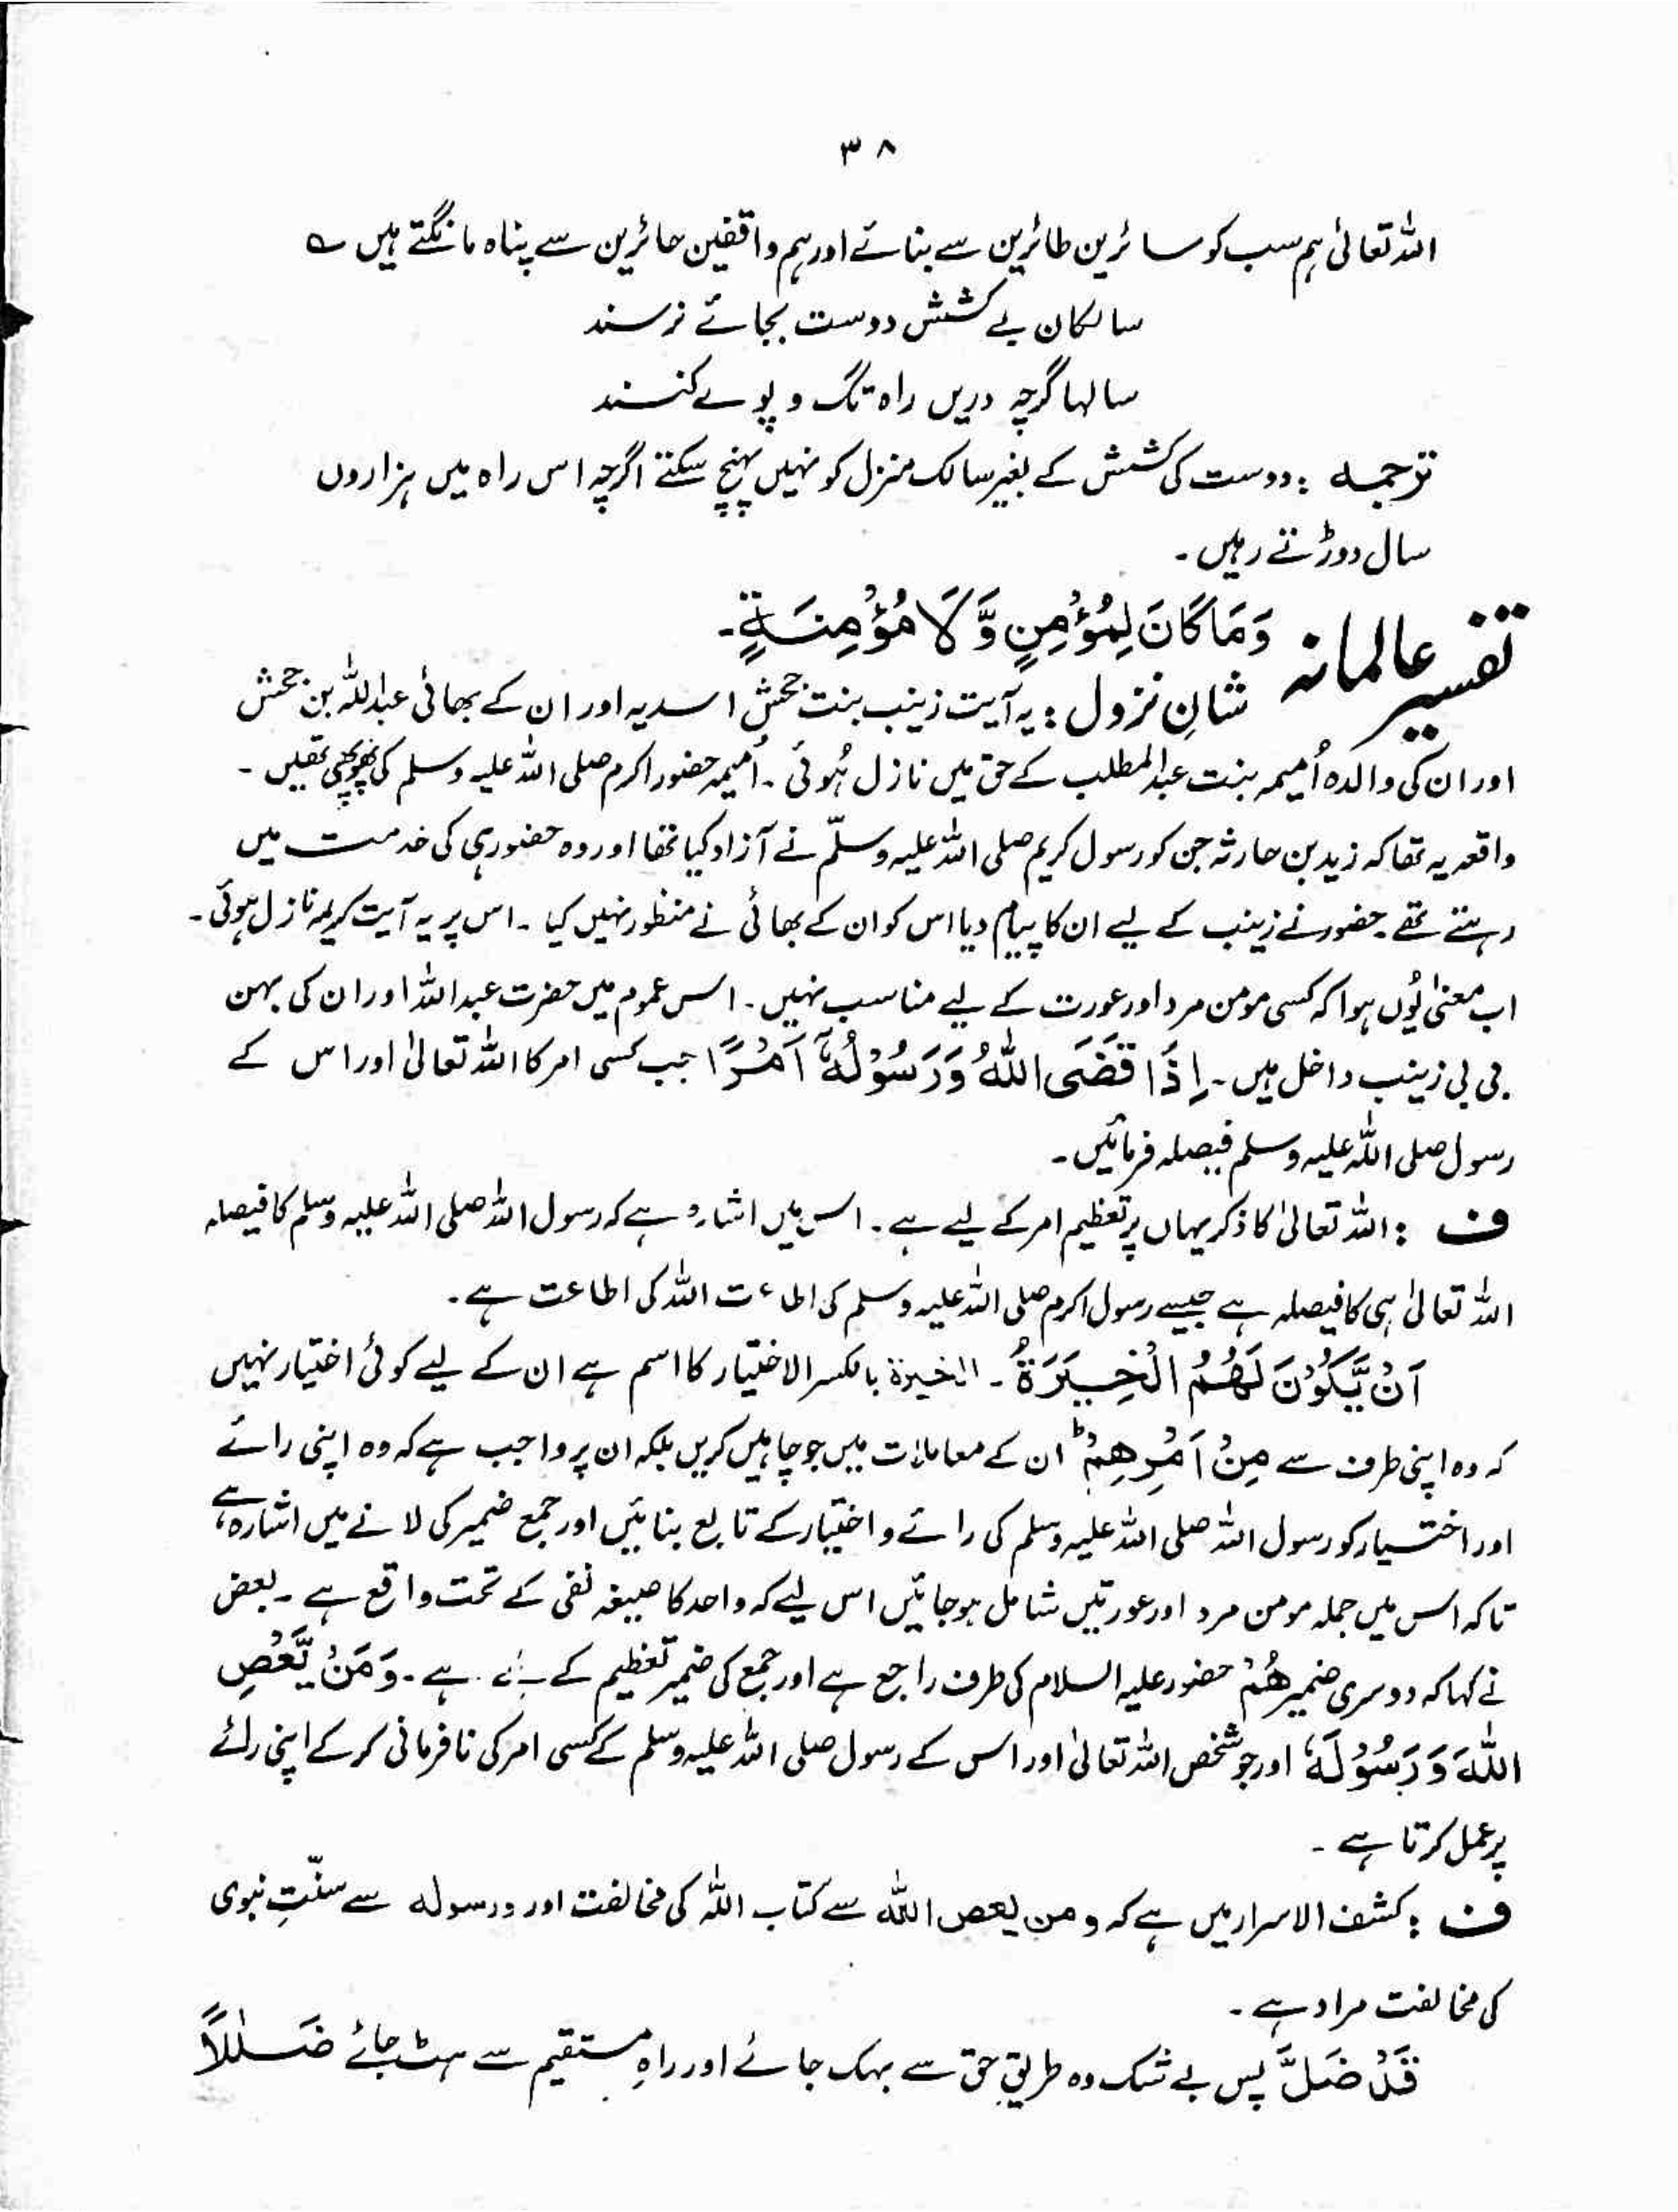 ۳۸
اللہ تعالیٰ ہم سب کو سائرین طائرین سے بنائے اور ہم واقفین حائرین سے پناہ مانگتے ہیں ؎
سالکان بے کشش دوست بجائے نرسند
سالہا گرچہ دریں راہ تگ و پوے کنند
ترجمہ : دوست کی کشش کے بغیر سالک منزل کو نہیں پہنچ سکتے اگرچہ اس راہ میں ہزاروں
سال دوڑتے رہیں ۔
تفسیر عالمانہ وَمَا كَانَ لِمُؤْمِنٍ وَّلَا مُؤْمِنَةٍ ۔
شانِ نزول : یہ آیت زینب بنت جحش اسدیہ اور ان کے بھائی عبداللہ بن جحش
اور ان کی والدہ اُمیمہ بنت عبدالمطلب کے حق میں نازل ہُوئی ۔ اُمیمہ حضور اکرم صلی اللہ علیہ وسلم کی پھوپھی تھیں ۔
واقعہ یہ تھا کہ زید بن حارثہ جن کو رسول کریم صلی اللہ علیہ وسلّم نے آزاد کیا تھا اور وہ حضور ہی کی خدمت میں
رہتے تھے ۔ حضور نے زینب کے لیے ان کا پیام دیا اس کو ان کے بھائی نے منظور نہیں کیا ۔ اس پر یہ آیت کریمہ نازل ہوئی ۔
اب معنیٰ یُوں ہوا کہ کسی مومن مرد اور عورت کے لیے مناسب نہیں ۔ اس عموم میں حضرت عبداللہ اور ان کی بہن
بی بی زینب داخل ہیں ۔ اِذَا قَضَى اللّٰهُ وَرَسُوْلُهٗٓ اَمْرًا جب کسی امر کا اللہ تعالیٰ اور اس کے
رسول صلی اللہ علیہ وسلم فیصلہ فرمائیں ۔
ف : اللہ تعالیٰ کا ذکر یہاں پر تعظیم امر کے لیے ہے ۔ اس میں اشارہ ہے کہ رسول اللہ صلی اللہ علیہ وسلم کا فیصلہ
اللہ تعالیٰ ہی کا فیصلہ ہے جیسے رسول اکرم صلی اللہ علیہ وسلم کی اطاعت اللہ کی اطاعت ہے ۔
اَنْ يَّكُوْنَ لَهُمُ الْخِيَرَةُ ۔ الخیرۃ بالکسر الاختیار کا اسم ہے ان کے لیے کوئی اختیار نہیں
کہ وہ اپنی طرف سے مِنْ اَمْرِهِمْ ؕ ان کے معاملات میں جو چاہیں کریں بلکہ ان پر واجب ہے کہ وہ اپنی رائے
اور اختیار کو رسول اللہ صلی اللہ علیہ وسلم کی رائے و اختیار کے تابع بنائیں اور جمع ضمیر کی لانے میں اشارہ ہے
تاکہ اس میں جملہ مومن مرد اور عورتیں شامل ہو جائیں اس لیے کہ واحد کا صیغہ نفی کے تحت واقع ہے ۔ بعض
نے کہا کہ دوسری ضمیر هُمْ حضور علیہ السلام کی طرف راجع ہے اور جمع کی ضمیر تعظیم کے ہے ۔ وَمَنْ يَّعْصِ
اللّٰهَ وَرَسُوْلَهٗ اور جو شخص اللہ تعالیٰ اور اس کے رسول صلی اللہ علیہ وسلم کے کسی امر کی نافرمانی کر کے اپنی رائے
پر عمل کرتا ہے ۔
ف : کشف الاسرار میں ہے کہ ومن یعص اللہ سے کتاب اللہ کی مخالفت اور ورسولہ سے سنّتِ نبوی
کی مخالفت مراد ہے ۔
فَقَدْ ضَلَّ پس بے شک وہ طریقِ حق سے بہک جائے اور راہِ مستقیم سے ہٹ جائے ضَلٰلًا